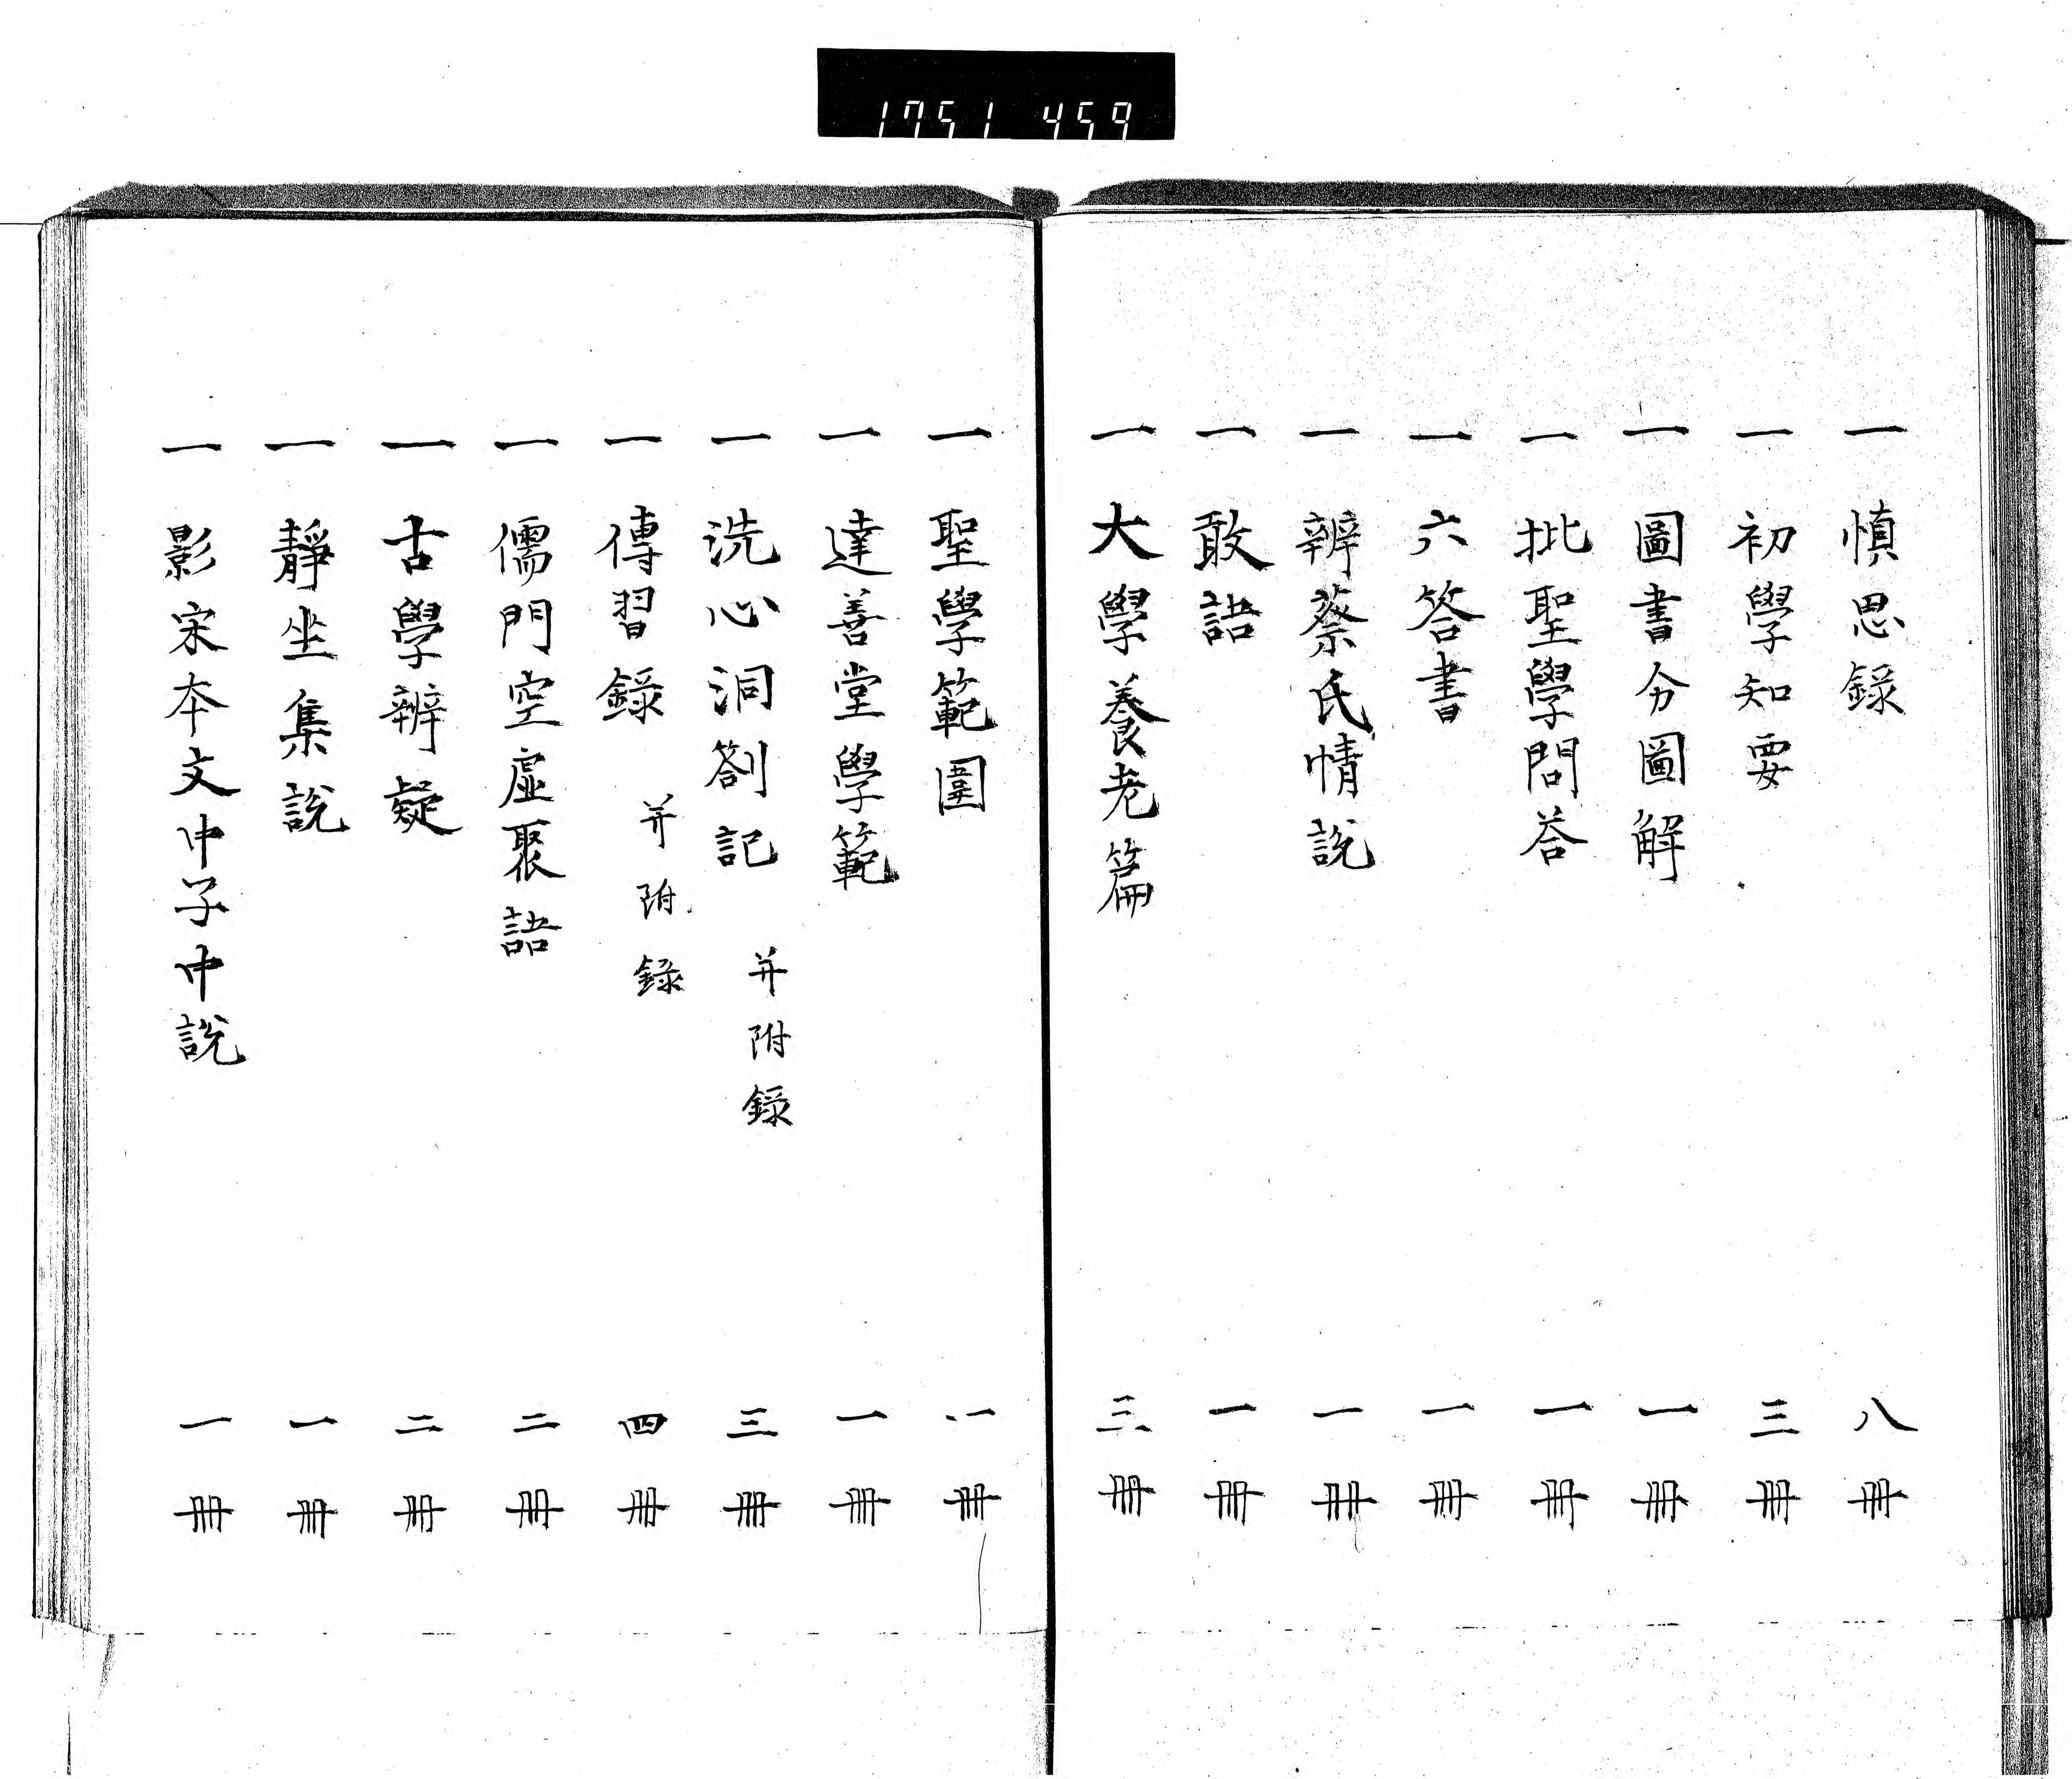 1751 459
一 慎思錄 八冊
一 初學知要 三冊
一 圖書分圖解 一冊
一 批聖學問荅 一冊
一 六答書 一冊
一 辨蔡氏情説 一冊
一 敢語 一冊
一 大學養老篇 三冊
一 聖學範圍 一冊
一 達善堂學範 一冊
一 洗心洞劄記 并附録 三冊
一 傳習録 并附録 四冊
一 儒門空虚聚語 二冊
一 古學辨疑 二冊
一 靜坐集説 一冊
一 影宋本文中子中説 一冊